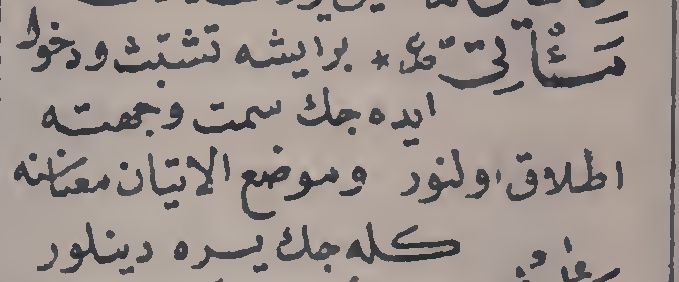 مأتى ع * برايشه تشبث ودخول
ايده جك سمت وجهته
اطلاق اولنور وموضع الاتيان معناسنه
كله جك يره دينلور